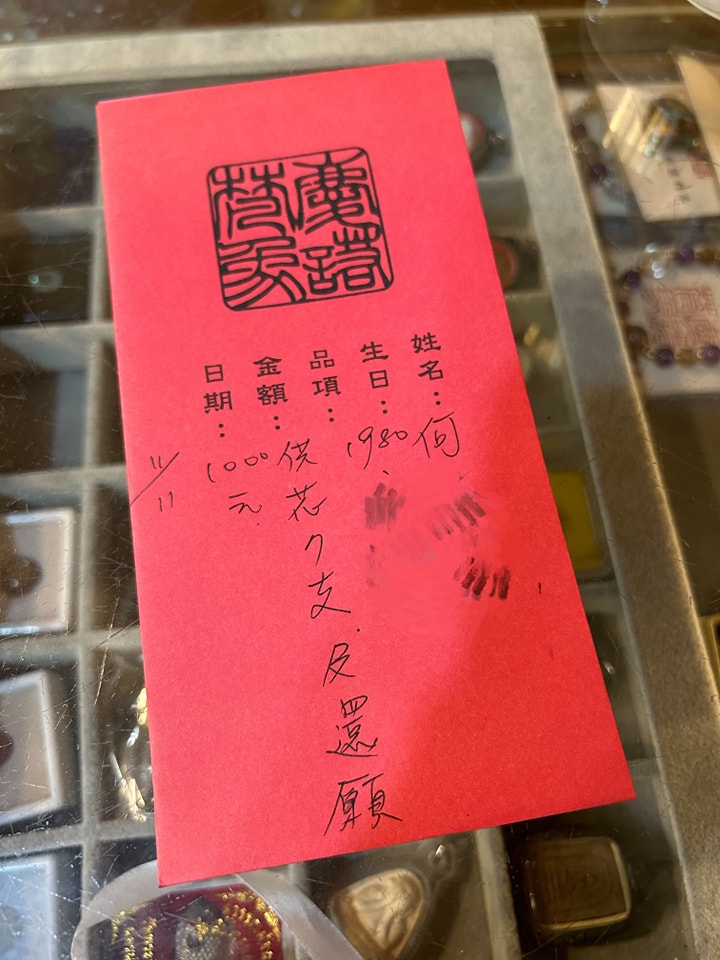 姓名：何
生日：1980.
品項：供花支.及還願
金額：1000元.
日期：11/11